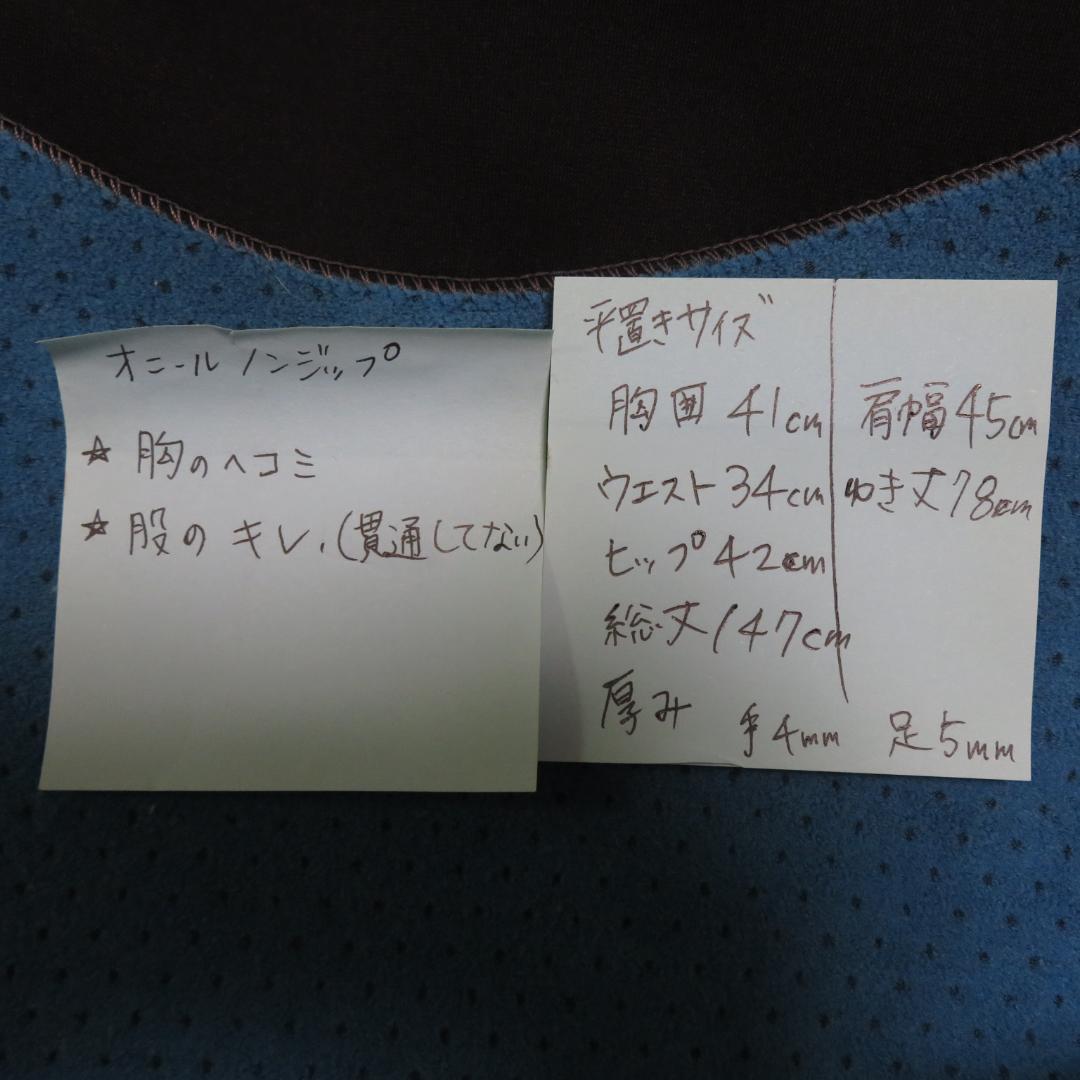 オニール ノンジップ
☆ 胸のヘコミ
☆ 股のキレ.(貫通してない)
平置きサイズ
胸囲 41cm
ウエスト 34cm
ヒップ 42cm
総丈 147cm
肩幅 45cm
ゆき丈 78cm
厚み 手4mm 足5mm